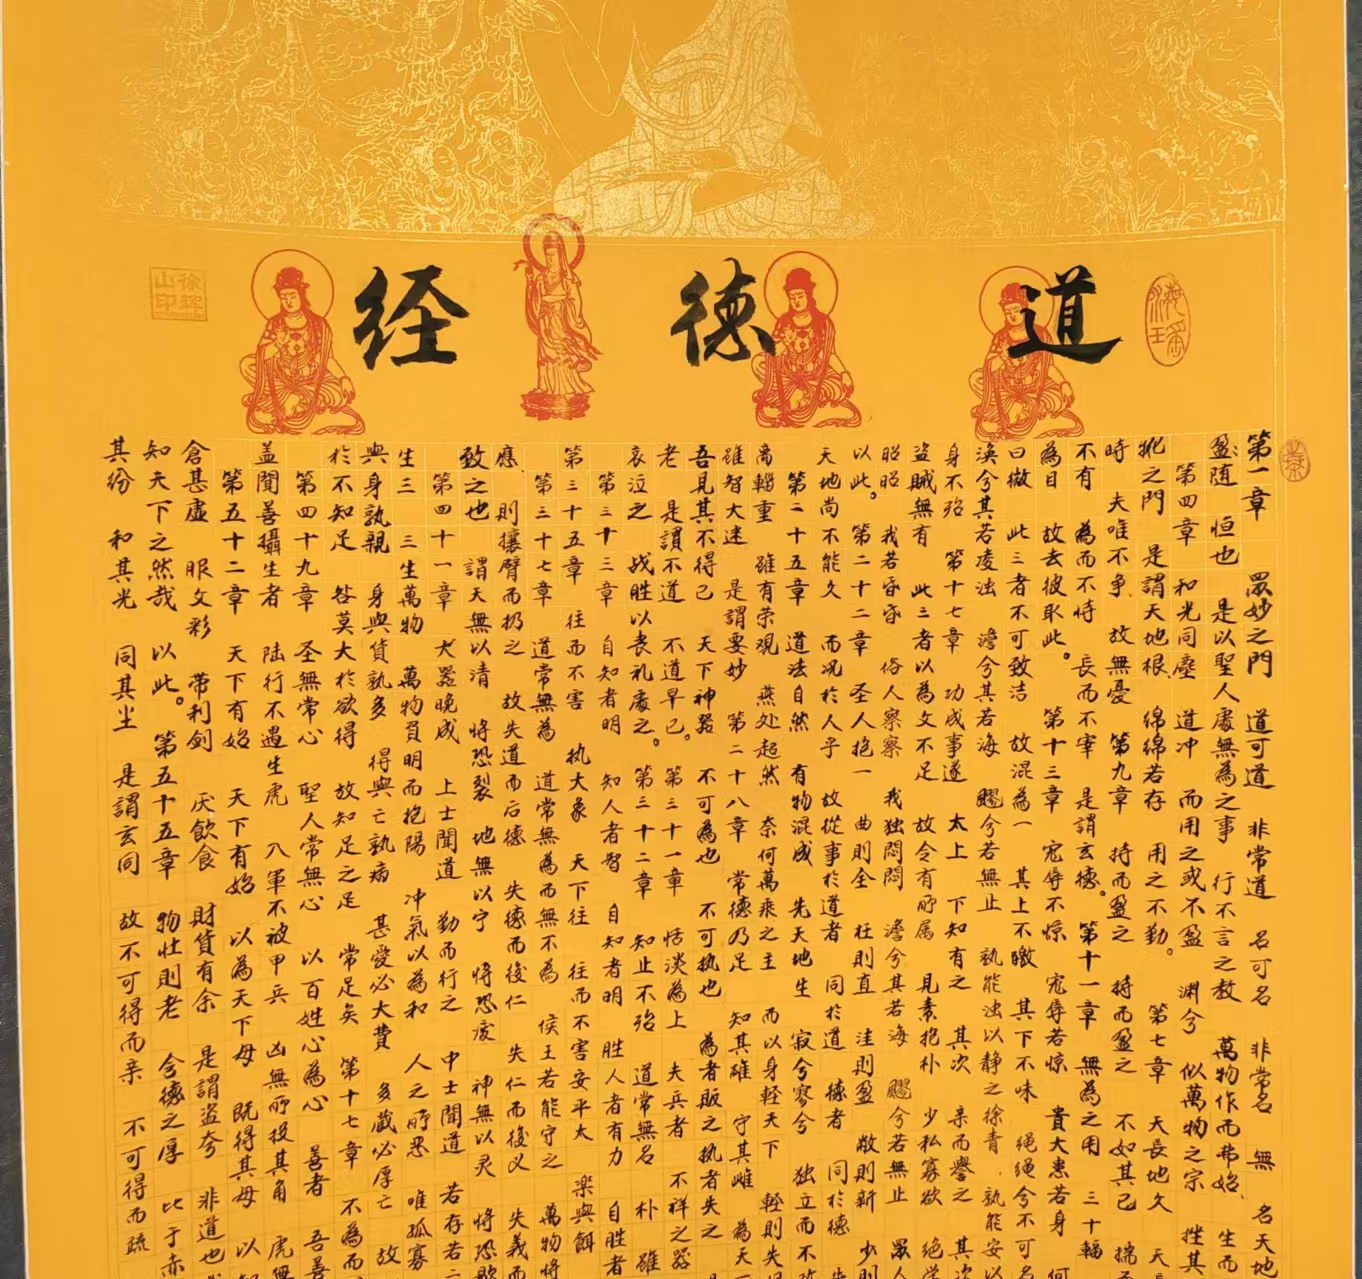 道德经
徐辉山印
第一章 眾妙之門 道可道 非常道 名可名 非常名 無 名天地
盈随 恒也 是以聖人處無為之事 行不言之教 萬物作而弗始 生而
第四章 和光同塵 道冲 而用之或不盈 渊兮 似萬物之宗 挫其
牝之門 是謂天地根 绵绵若存 用之不勤。 第七章 天長地久 天
時 夫唯不争 故無憂 第九章 持而盈之 持而盈之 不如其已 揣
不有 為而不恃 長而不宰 是謂玄德。 第十一章 無為之用 三十輻
為目 故去彼取此。 第十三章 宠辱不惊 宠辱若惊 貴大患若身 何
曰微 此三者不可致洁 故混為一 其上不曒 其下不味 绳绳兮不可名
涣兮其若凌浊 澹兮其若海 飂兮若無止 孰能浊以静之徐青 孰能安以
身不殆 第十七章 功成事遂 太上 下知有之 其次 亲而譽之 其次
盗賊無有 此三者以為文不足 故令有所属 見素抱朴 少私寡欲 绝学
昭昭 我若昏昏 俗人察察 我独悶悶 澹兮其若海 飂兮若無止 眾人
以此。 第二十二章 圣人抱一 曲則全 枉則直 洼則盈 敝則新 少則
天地尚不能久 而况於人乎 故從事於道者 同於道 德者 同於德
第二十五章 道法自然 有物混成 先天地生 寂兮寥兮 独立而不改
离輜重 雖有荣观 燕处超然 奈何萬乘之主 而以身軽天下 軽則失
雖智大迷 是謂要妙 第二十八章 常德乃足 知其雄 守其雌 為天
吾見其不得已 天下神器 不可為也 不可执也 為者敗之 执者失之
老 是謂不道 不道早已。 第三十一章 恬淡為上 夫兵者 不祥之器
哀泣之 战胜以丧礼處之。 第三十二章 知止不殆 道常無名 朴 雖
第三十三章 自知者明 知人者智 自知者明 胜人者有力 自胜者
第三十五章 往而不害 执大象 天下往 往而不害安平太 楽與餌
第三十七章 道常無為 道常無為而無不為 侯王若能守之 萬物将
應 則攘臂而扔之 故失道而后德 失德而後仁 失仁而後义 失義而
致之也 謂天無以清 将恐裂 地無以宁 将恐废 神無以灵 将恐歇
第四十一章 大器晚成 上士聞道 勤而行之 中士聞道 若存若
生三 三生萬物 萬物負明而抱陽 冲氣以為和 人之所恶 唯孤寡
與身孰親 身與貨孰多 得與亡孰病 甚愛必大費 多藏必厚亡 故
於不知足 咎莫大於欲得 故知足之足 常足矣 第十七章 不為而
第四十九章 圣無常心 聖人常無心 以百姓心為心 善者 吾善
盖聞善攝生者 陆行不遇生虎 入軍不被甲兵 凶無所投其角 虎無
第五十二章 天下有始 天下有始 以為天下母 既得其母 以
倉甚虚 服文彩 带利剑 厌飲食 財貨有余 是謂盗夸 非道也
知天下之然哉 以此。 第五十五章 物壮則老 含德之厚 比于赤
其纷 和其光 同其尘 是謂玄同 故不可得而亲 不可得而疏